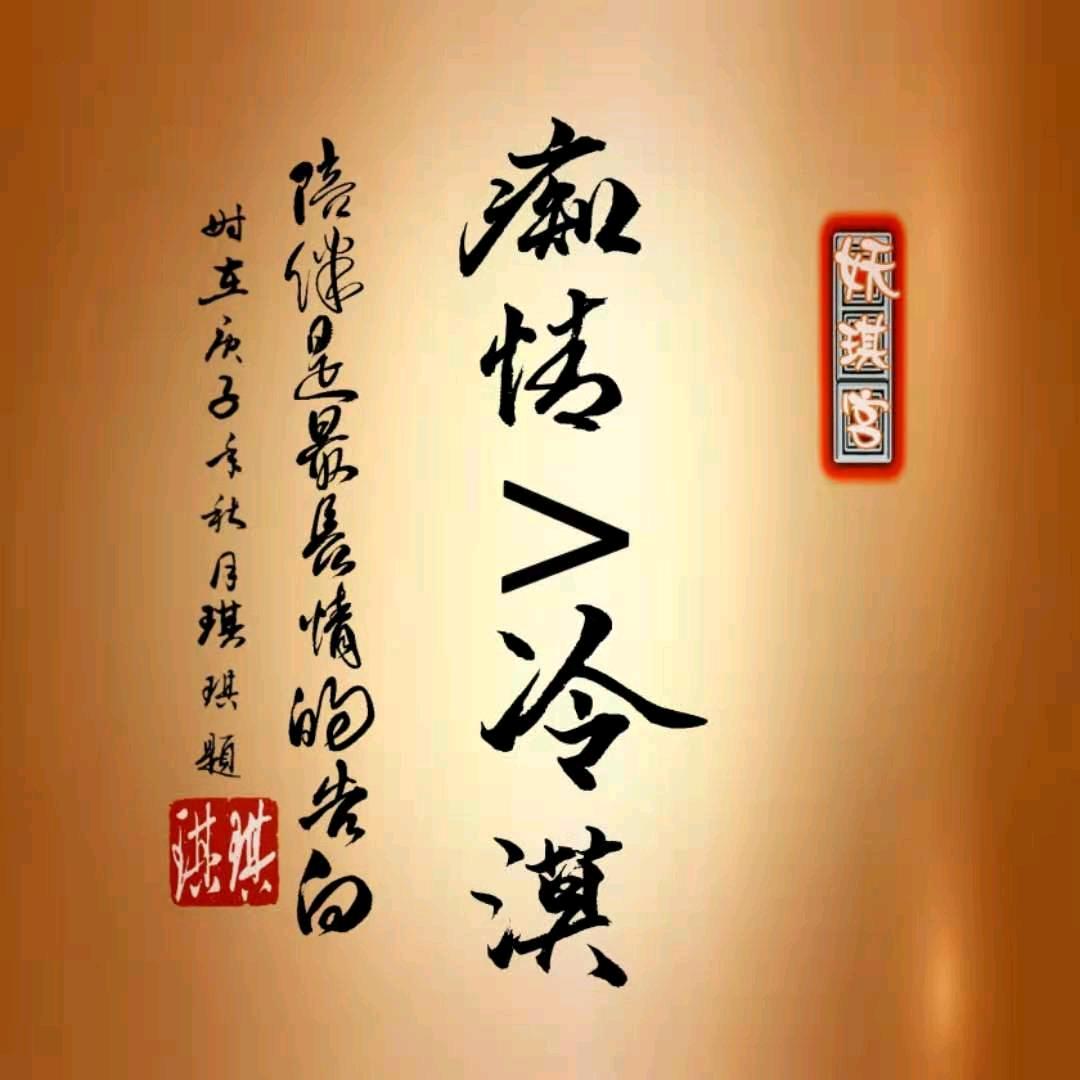 妖琪宫
痴情>冷漠
陪伴是最长情的告白
时在庚子年秋月琪琪题
琪琪